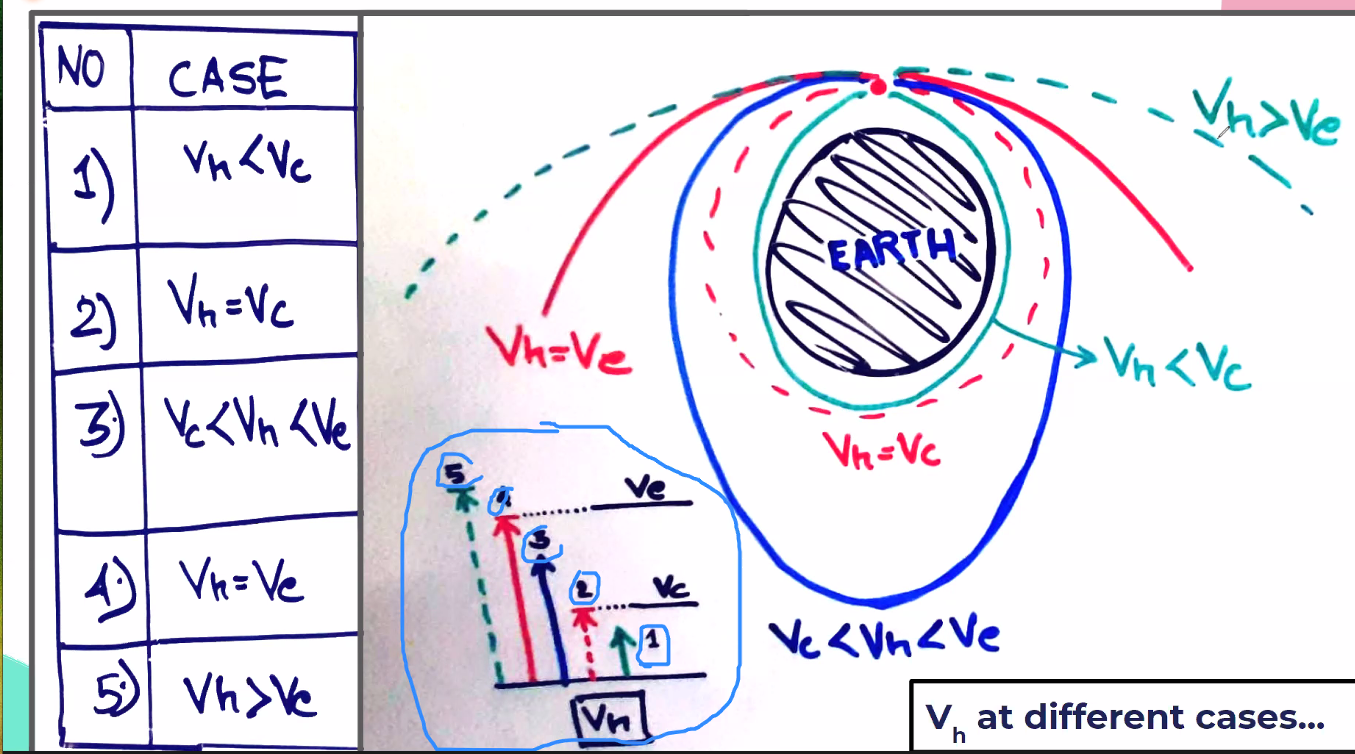 NO CASE
1) Vh<Vc
2) Vh=Vc
3) Vc<Vh<Ve
4) Vh=Ve
5) Vh>Ve
Vh>Ve
EARTH
Vh=Ve
Vh<Vc
Vh=Vc
Vc<Vh<Ve
5
4
Ve
3
2
Vc
1
Vh
Vh at different cases...